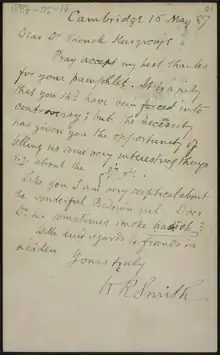 1887-05-16
Cambridge 16 May 87
Dear Dr Snouck Hurgronje
Pray accept my best thanks
for your pamphlet. It is a pity
that you shd have been forced into
controversy; but the necessity
has given you the opportunity of
telling us some very interesting things
about the
Like you I am very sceptical about
the wonderful Bedouin girl. Does
Dr L. sometimes smoke
With kind regards to friends in
Leiden
Yours truly
W R Smith